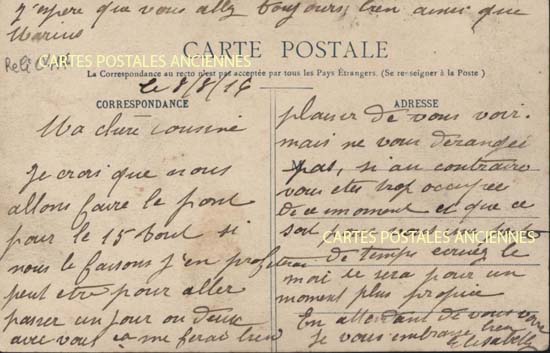 j'espère que vous allez toujours bien ainsi que
Marius
CARTES POSTALES ANCIENNES
CARTE POSTALE
La Correspondance au recto n'est pas acceptée par tous les Pays Étrangers. (Se renseigner à la Poste)
le 8/8/16
CORRESPONDANCE
Ma chère cousine
Je crois que nous
allons faire le pont
pour le 15 aout si
nous le faisons j'en profiterai
peut etre pour aller
passer un jour ou deux
avec vous ça me ferai bien
ADRESSE
plaisir de vous voir.
mais ne vous dérangez
pas, si au contraire
vous etes trop occupée
de ce moment et que ce
soit pour vous
CARTES POSTALES ANCIENNES
de temps ecrivez le
moi ce sera pour un
moment plus propice
En attendant de vous voir
Je vous embrasse bien
Elisabeth